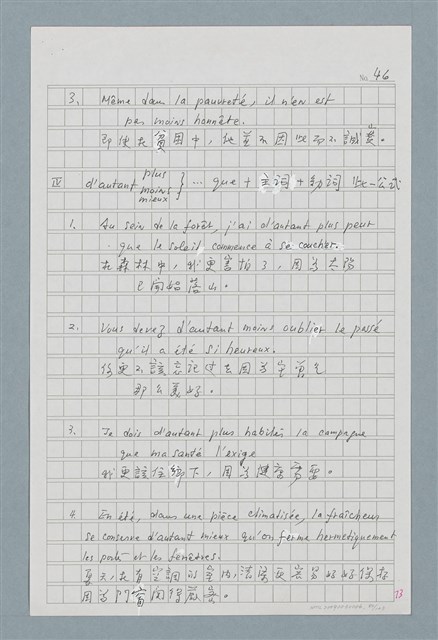 No. 46
3. Même dans la pauvreté, il n'en est
pas moins honnête.
即使在貧困中，他並不因此而不誠實。
IV d'autant plus moins mieux } ... que + 主詞 + 動詞 此一公式
1. Au sein de la forêt, j'ai d'autant plus peur
que le soleil commence à se coucher.
在森林中，我更害怕了，因為太陽
已開始落山。
2. Vous devez d'autant moins oublier le passé
qu'il a été si heureux.
你更不該忘記過去因為它曾是
那么美好。
3. Je dois d'autant plus habiter la campagne
que ma santé l'exige
我更該住鄉下，因為健康需要。
4. En été, dans une pièce climatisée, la fraîcheur
se conserve d'autant mieux qu'on ferme hermétiquement
les portes et les fenêtres.
夏天，在有空調的室內，涼爽更容易好好保存
因為門窗關得嚴密。
73